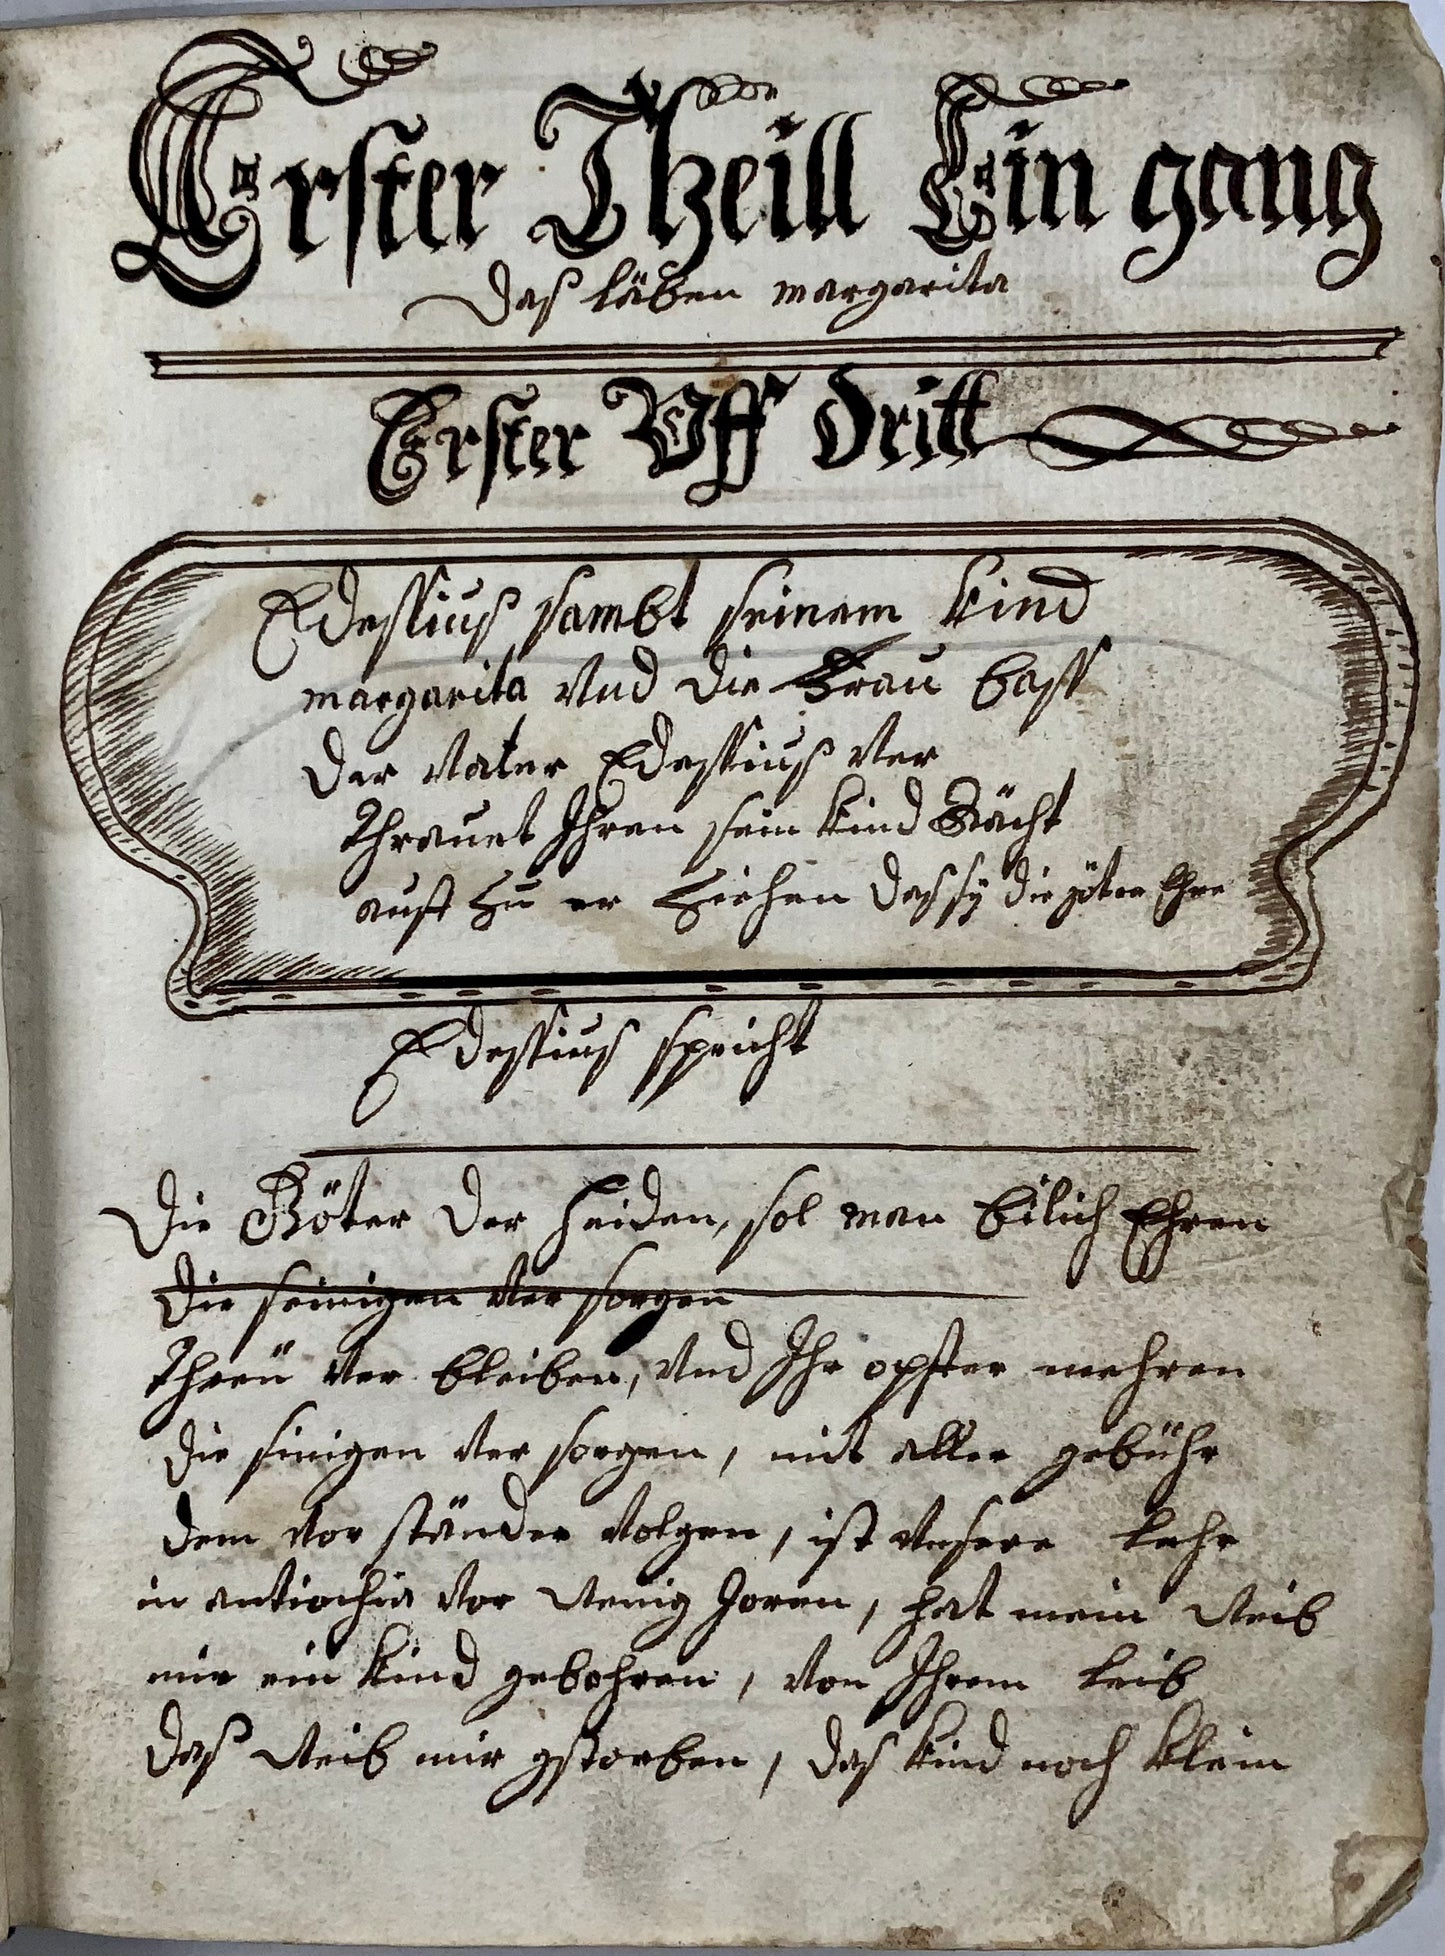 Erster Theill Ein gang
Das läben margarita
Erster Uff dritt
Edessius sambt seinem kind
margarita Vnd die Frau bass
Der Vater Edessius Ver
Thrauet Ihren sein kind Rächt
aust Zu er Ziehen das sÿ die göter Ehre
Edessius spricht
Die Göter der Heiden, sol man bilich Ehren
Die seinigen Ver sorgen
Threü Ver bleiben, Vnd Ihr opster mehren
Die sinigen Ver sorgen, mit aller gebühr
Dem Vor ständer Volgen, ist Vnsere Lehr
in antiochia Vor Wenig Joren, hat mein Weib
mir ein kind gebohren, Von Ihrem Leib
Das Weib mir gstorben, das kind noch klein